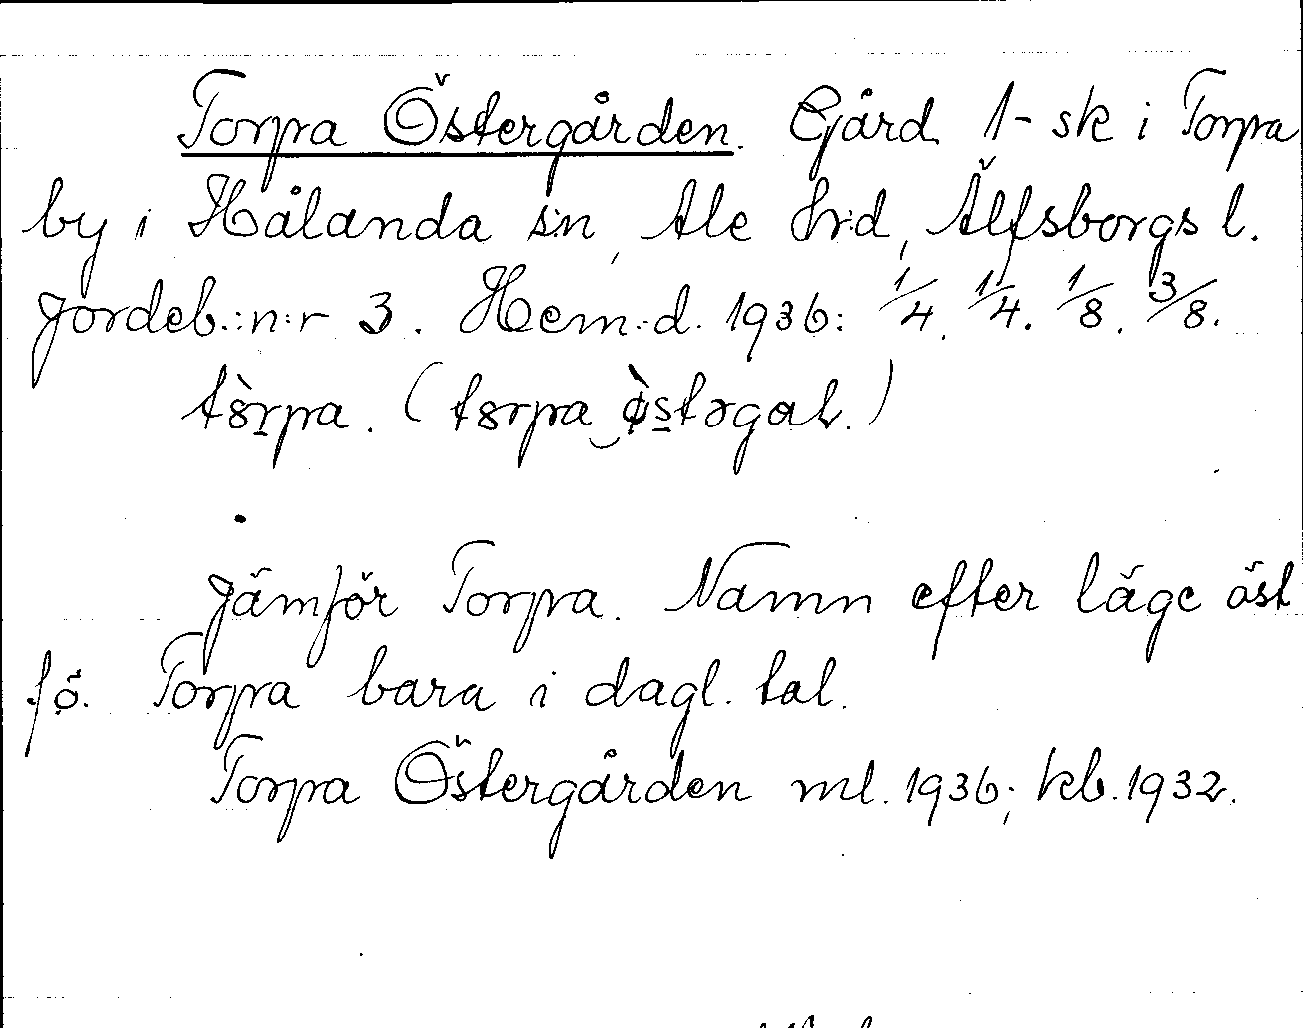 Torpa Östergården. Gård 1-sk i Torpa
by i Hålanda s:n, Ale hr:d, Älfsborgs l.
Jordeb.:n:r 3. Hem:d. 1936: 1/4. 1/4. 1/8. 3/8.
tòrpa. (torpa òstəgaɫ.)
Jämför Torpa. Namn efter läge öst
fö. Torpa bara i dagl. tal.
Torpa Östergården ml. 1936; kb. 1932.